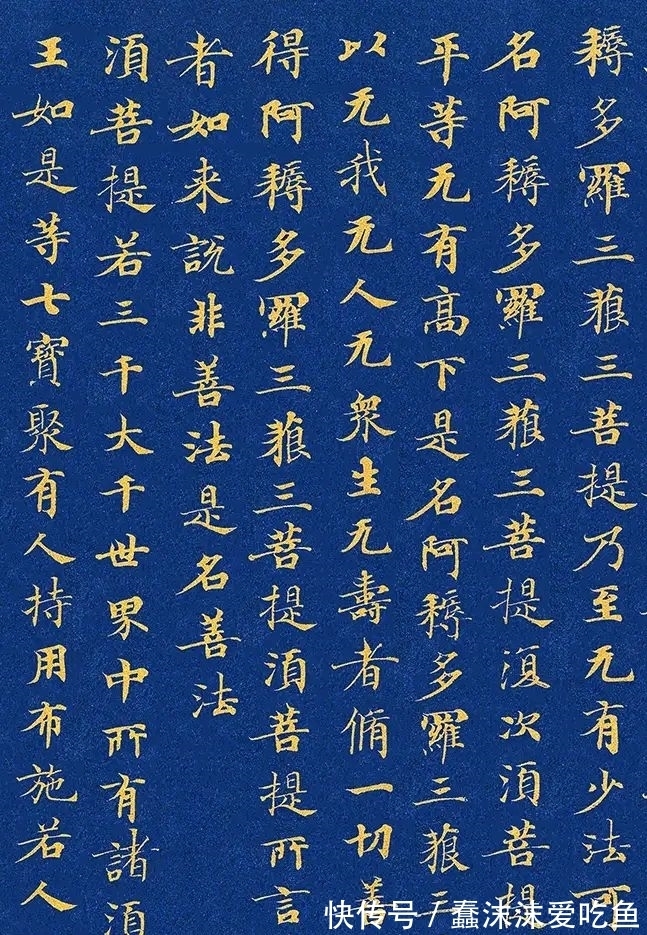 耨多羅三藐三菩提乃至无有少法可
名阿耨多羅三藐三菩提復次須菩提
平等无有高下是名阿耨多羅三藐三
以无我无人无衆生无壽者脩一切善
得阿耨多羅三藐三菩提須菩提所言
者如来説非善法是名善法
須菩提若三千大千世界中所有諸須
王如是等七寶聚有人持用布施若人
快传号/蠡沫沫爱吃鱼